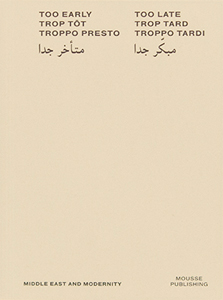 TOO EARLY
TROP TÔT
TROPPO PRESTO
متأخر جدا
TOO LATE
TROP TARD
TROPPO TARDI
مبكّر جدا
MIDDLE EAST AND MODERNITY
MOUSSE
PUBLISHING